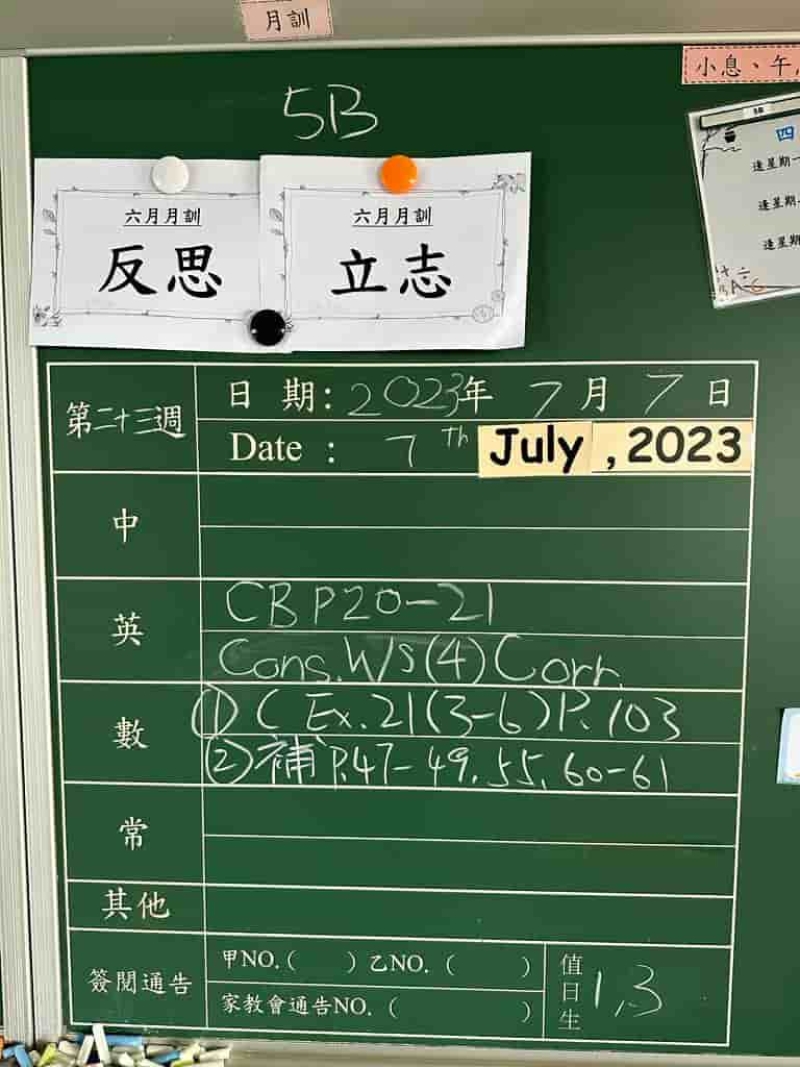 月訓
小息、午
5B
六月月訓
反思
六月月訓
立志
四
逢星期一
逢星期
逢星期
第二十三週
日期：2023年 7月7日
Date : 7th July , 2023
中
英
CB P20-21
Cons. W/s (4) Corr.
數
① C Ex. 21 (3-6) P. 103
② 補 P.47-49, 55, 60-61
常
其他
簽閱通告
甲NO. ( ) 乙NO. ( )
家教會通告NO. ( )
值日生
1,3